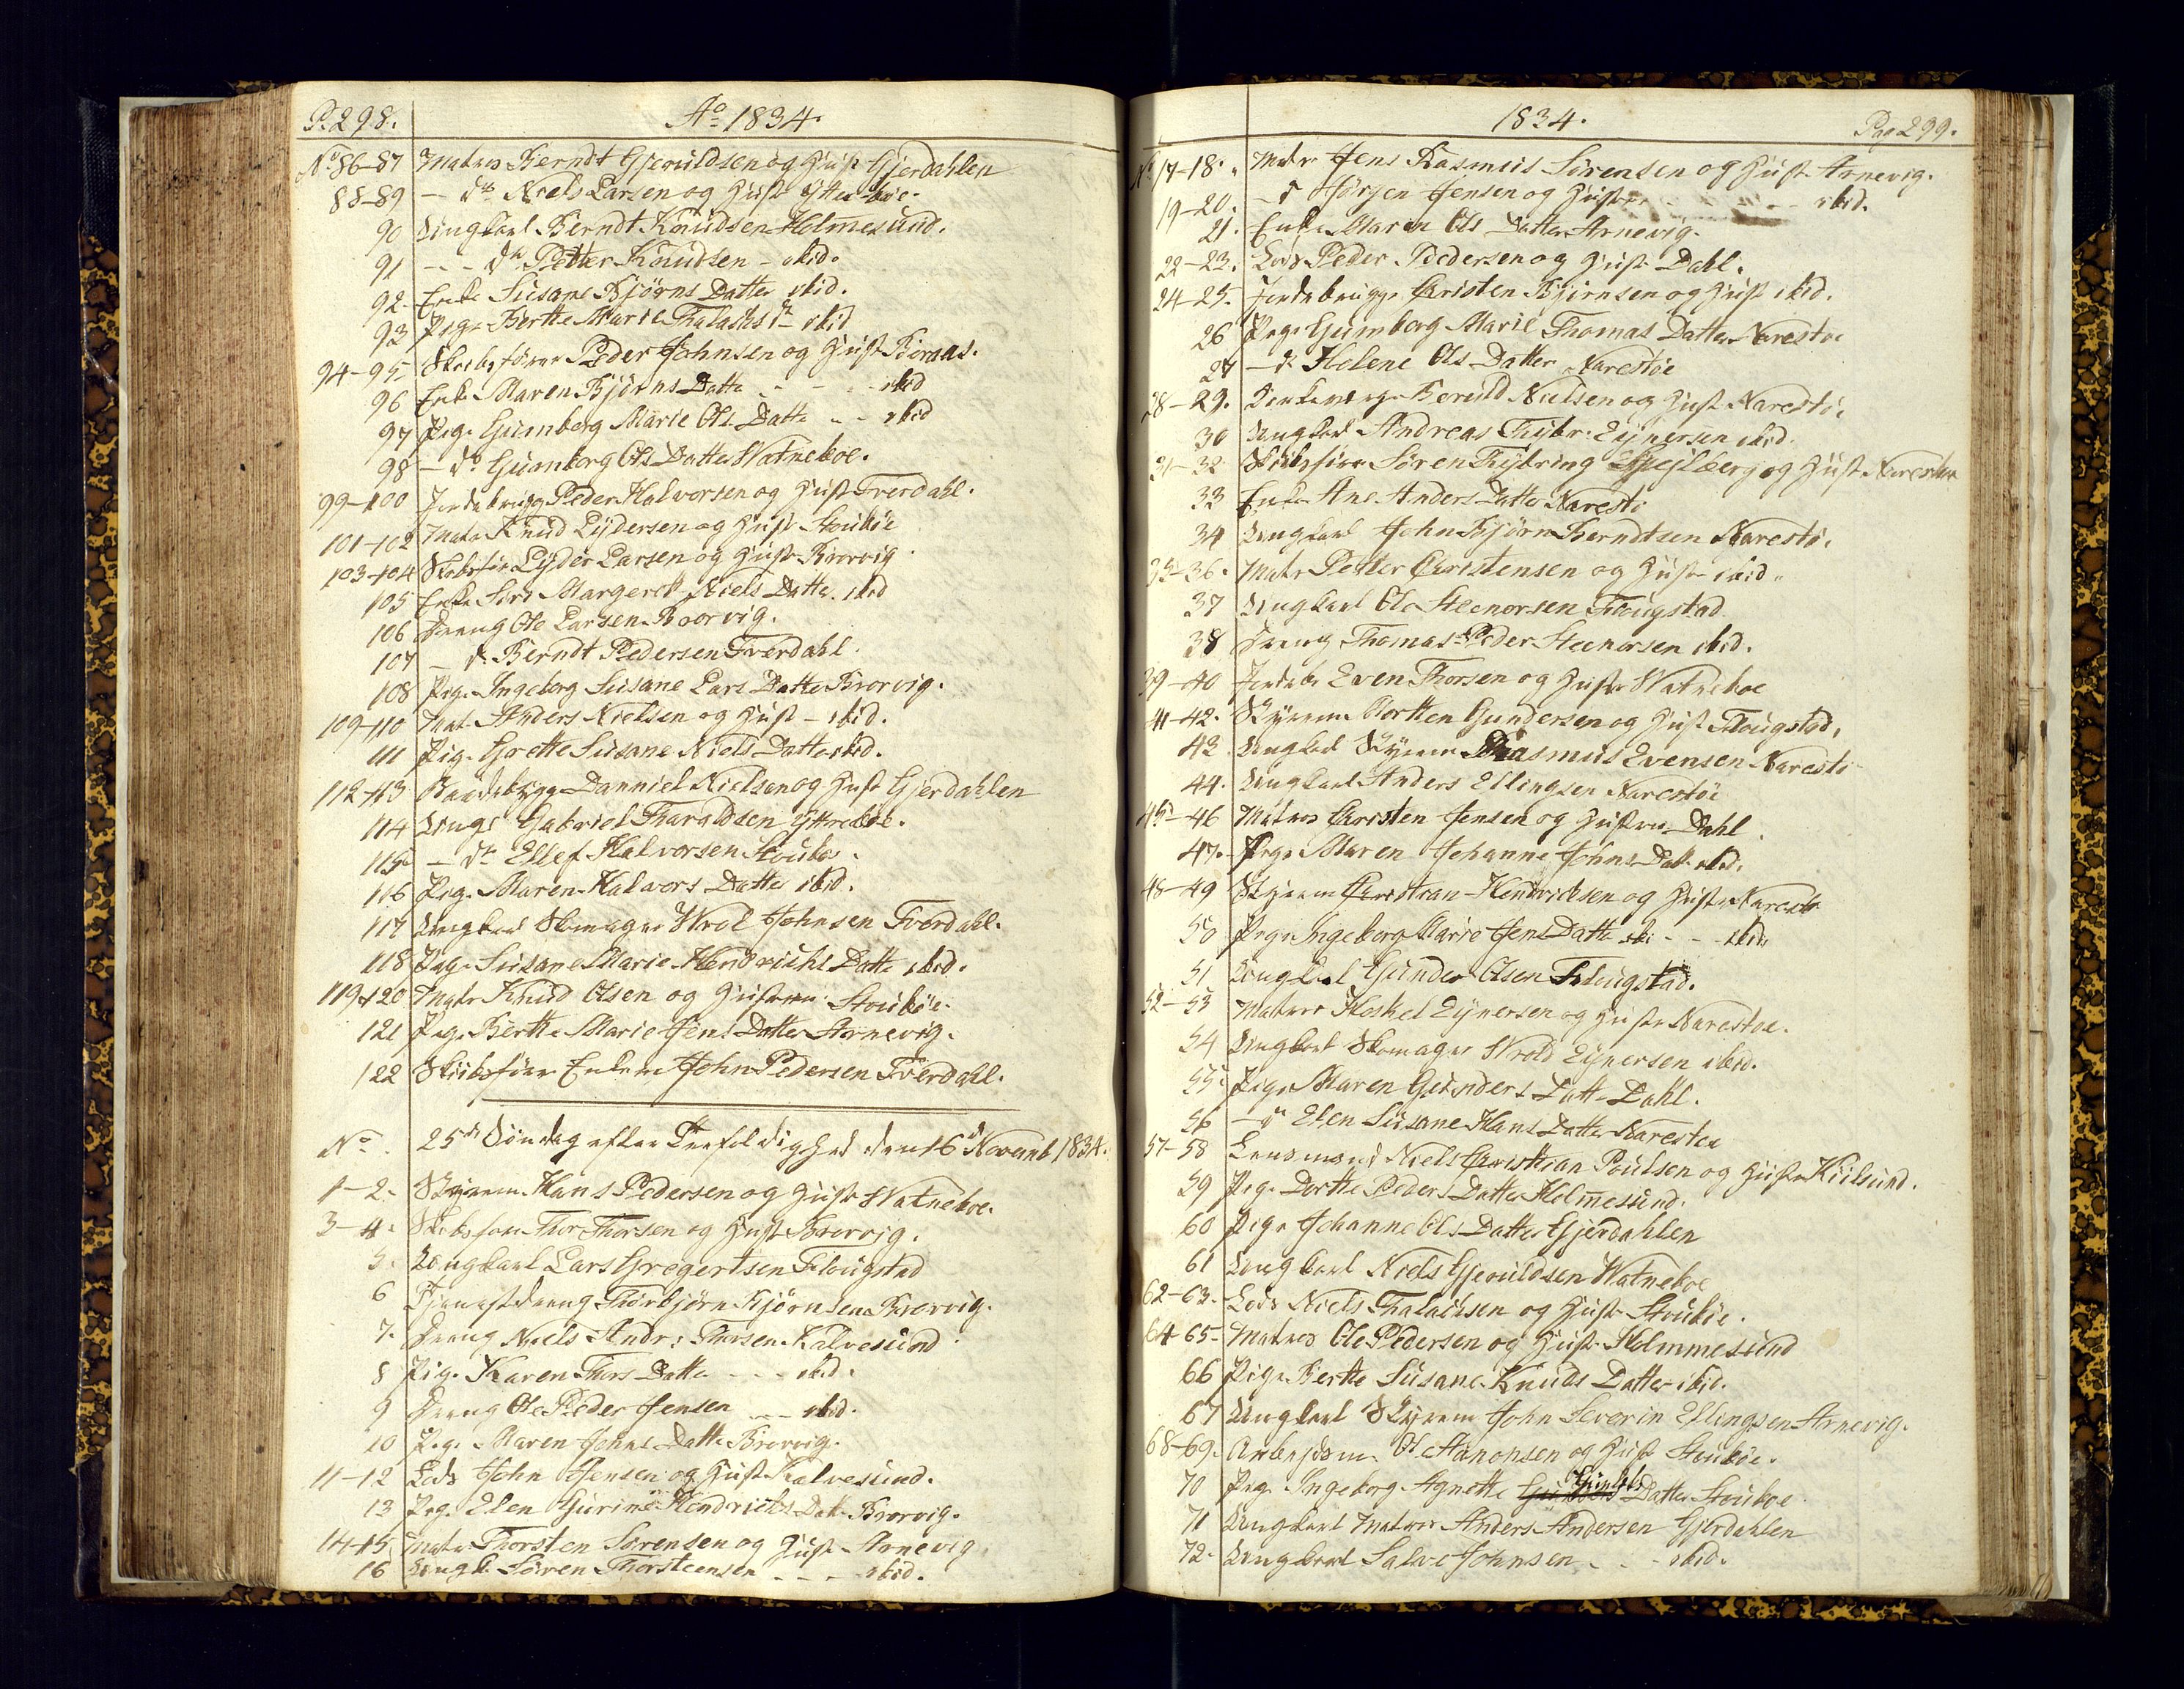 P. 298.
Ao 1834.
No 86-87 Matros Berndt Gjeruldsen og Hust Gjerdahlen
88-89 - do Niels Larsen og Hust Yttreboe.
90 Ungkarl Berndt Knudsen Holmesund.
91 - - do Petter Knudsen - ibid.
92. Enke Susane Bjørns Datter ibid.
93 Pige Berthe Marie Thalachs Dr ibid
94-95 Skibsfører Peder Johnsen og Hust Boraas.
96 Enke Maren Bjørns Datte - - - ibid
97 Pige Gumborg Marie Ols Datte - - ibid
98 - do Gunborg Ols Datter Watneboe.
99-100 Jordebrugg Peder Halvorsen og Hust Tverdahl.
101-102 Matr Knud Lydersen og Hust Stouböe
103-104 Skibsför Lyder Larsen og Hust Krorvig.
105 Enke Siri Margreth Niels Datte ibid
106 Dreng Ole Larsen Krorvig.
107 - do Berndt Pedersen Tverdahl.
108 Pige Ingeborg Susane Lars Datte Krorvig.
109-110 Mat. Anders Nielsen og Hust - ibid.
111 Pige Grethe Susane Niels Datte ibid.
112-113 Baadebygg Danniel Nielsen og Hust Gjerdahlen
114 Ungk Gabriel Tharaldsen Yttreböe.
115 - do Ellef Halvorsen Stouböe.
116 Pige Maren Halvors Datter ibid.
117 Ungkarl Skomager Wrol Johnsen Tverdahl.
118 Pige Susane Marie Hendrichs Datte ibid.
119-120 Matr Knud Olsen og Hustrue Stouböe.
121 Pige Berthe Marie Jens Datter Arnevig.
122 Skibsförer Enken John Pedersen Tverdahl.
No. 25de Söndag efter Trefoldighed den 16de Novemb 1834.
1-2. Styrem. Hans Pedersen og Hustr Watneboe.
3-4. Skibsför Thor Thorsen og Hust Krorvig.
5. Ungkarl Lars Gregertsen Flougstad
6 Tjenestdreng Thorbjörn Bjørnsen Krorvig.
7. Dreng Niels Andr: Thorsen Kalvesund
8 Pige Karen Thors Datte - - - ibid.
9 Dreng Ole Peder Jensen - - ibid.
10 Pige Maren Johns Datte Krorvig.
11-12 Lods John Jensen og Hust Kalvesund.
13 Pige Elen Gurine Hendrichs Datr Krorvig.
14-15. Matr Thorsten Sörensen og Hust Arnevig.
16 Ungk. Sören Thorsteensen - - - ibid.
1834.
Pag 299.
No 17-18. Matr Jens Rasmus Sörensen og Hust Arnevig.
19-20. - d Jörgen Jensen og Hustr - - - ibid.
21. Enke Maren Ols Datter Arnevig.
22-23. Lods Peder Pedersen og Hust Dahl.
24-25. Jordebrugge Christen Bjørnsen og Hust ibid.
26 Pige Gumborg Marie Thomas Datter Narestöe
27 - do Helene Ols Datter Narestöe
28-29. Gjeruld Nielsen og Hust Narestöe
30 Ungkarl Andreas Thybr: Eynersen ibid.
31-32 Skibsförer Sören Thybring Spejlberg og Hust Narestöe
33 Enke Ane Anders Datter Narestö
34 Ungkarl John Bjørn Berndtsen Narestö.
35-36. Matr Petter Christensen og Hustr ibid.
37 Ungkarl Ole Steenorsen Flougstad
38 Dreng Thomas Peder Steenorsen ibid.
39-40 Jordebr Even Thorsen og Hustr Watneboe
41-42. Styrem. Morthen Gundersen og Hust Flougstad.
43 Ungkarl Styrem Rasmus Evensen Narestö
44. Ungkarl Anders Ellingsen Narestöe
45-46 Matros Christen Jensen og Hustrue Dahl.
47. Pige Maren Johanne Johns Datr ibid.
48-49 Styrem Christian Hendricksen og Hustr Narestö
50 Pige Ingeborg Marie Jens Datte - - - ibid.
51 Ungkarl Gunder Olsen Flougstad.
52-53 Matros Heskel Eynersen og Hustr Narestoe.
54 Ungkarl Skomager Wrold Eynersen ibid.
55. Pige Maren Gunders Datte Dahl.
56 - do Elen Susane Hans Datter Narestöe
57-58 Lensmand Niels Christian Poulsen og Hustr Kiilsund.
59 Pige Dorthe Peders Datter Holmesund.
60 Pige Johanne Ols Datter Gjerdahlen
61 Ungkarl Niels Gjeruldsen Watneboe
62-63. Lods Niels Thalachsen og Hust Stouböe.
64-65. Matros Ole Pedersen og Hust Holmmesund
66 Pige Berthe Susane Knuds Datter ibid.
67 Ungkarl Styrem John Severin Ellingsen Arnevig.
68-69. Arbejdsm. Ole Aanonsen og Hust Stouböe.
70 Pige Ingeborg Agnethe Datter Stouböe
71 Ungkarl Matros Anders Andersen Gjerdahlen
72. Ungkarl Salve Johnsen - - - ibid.